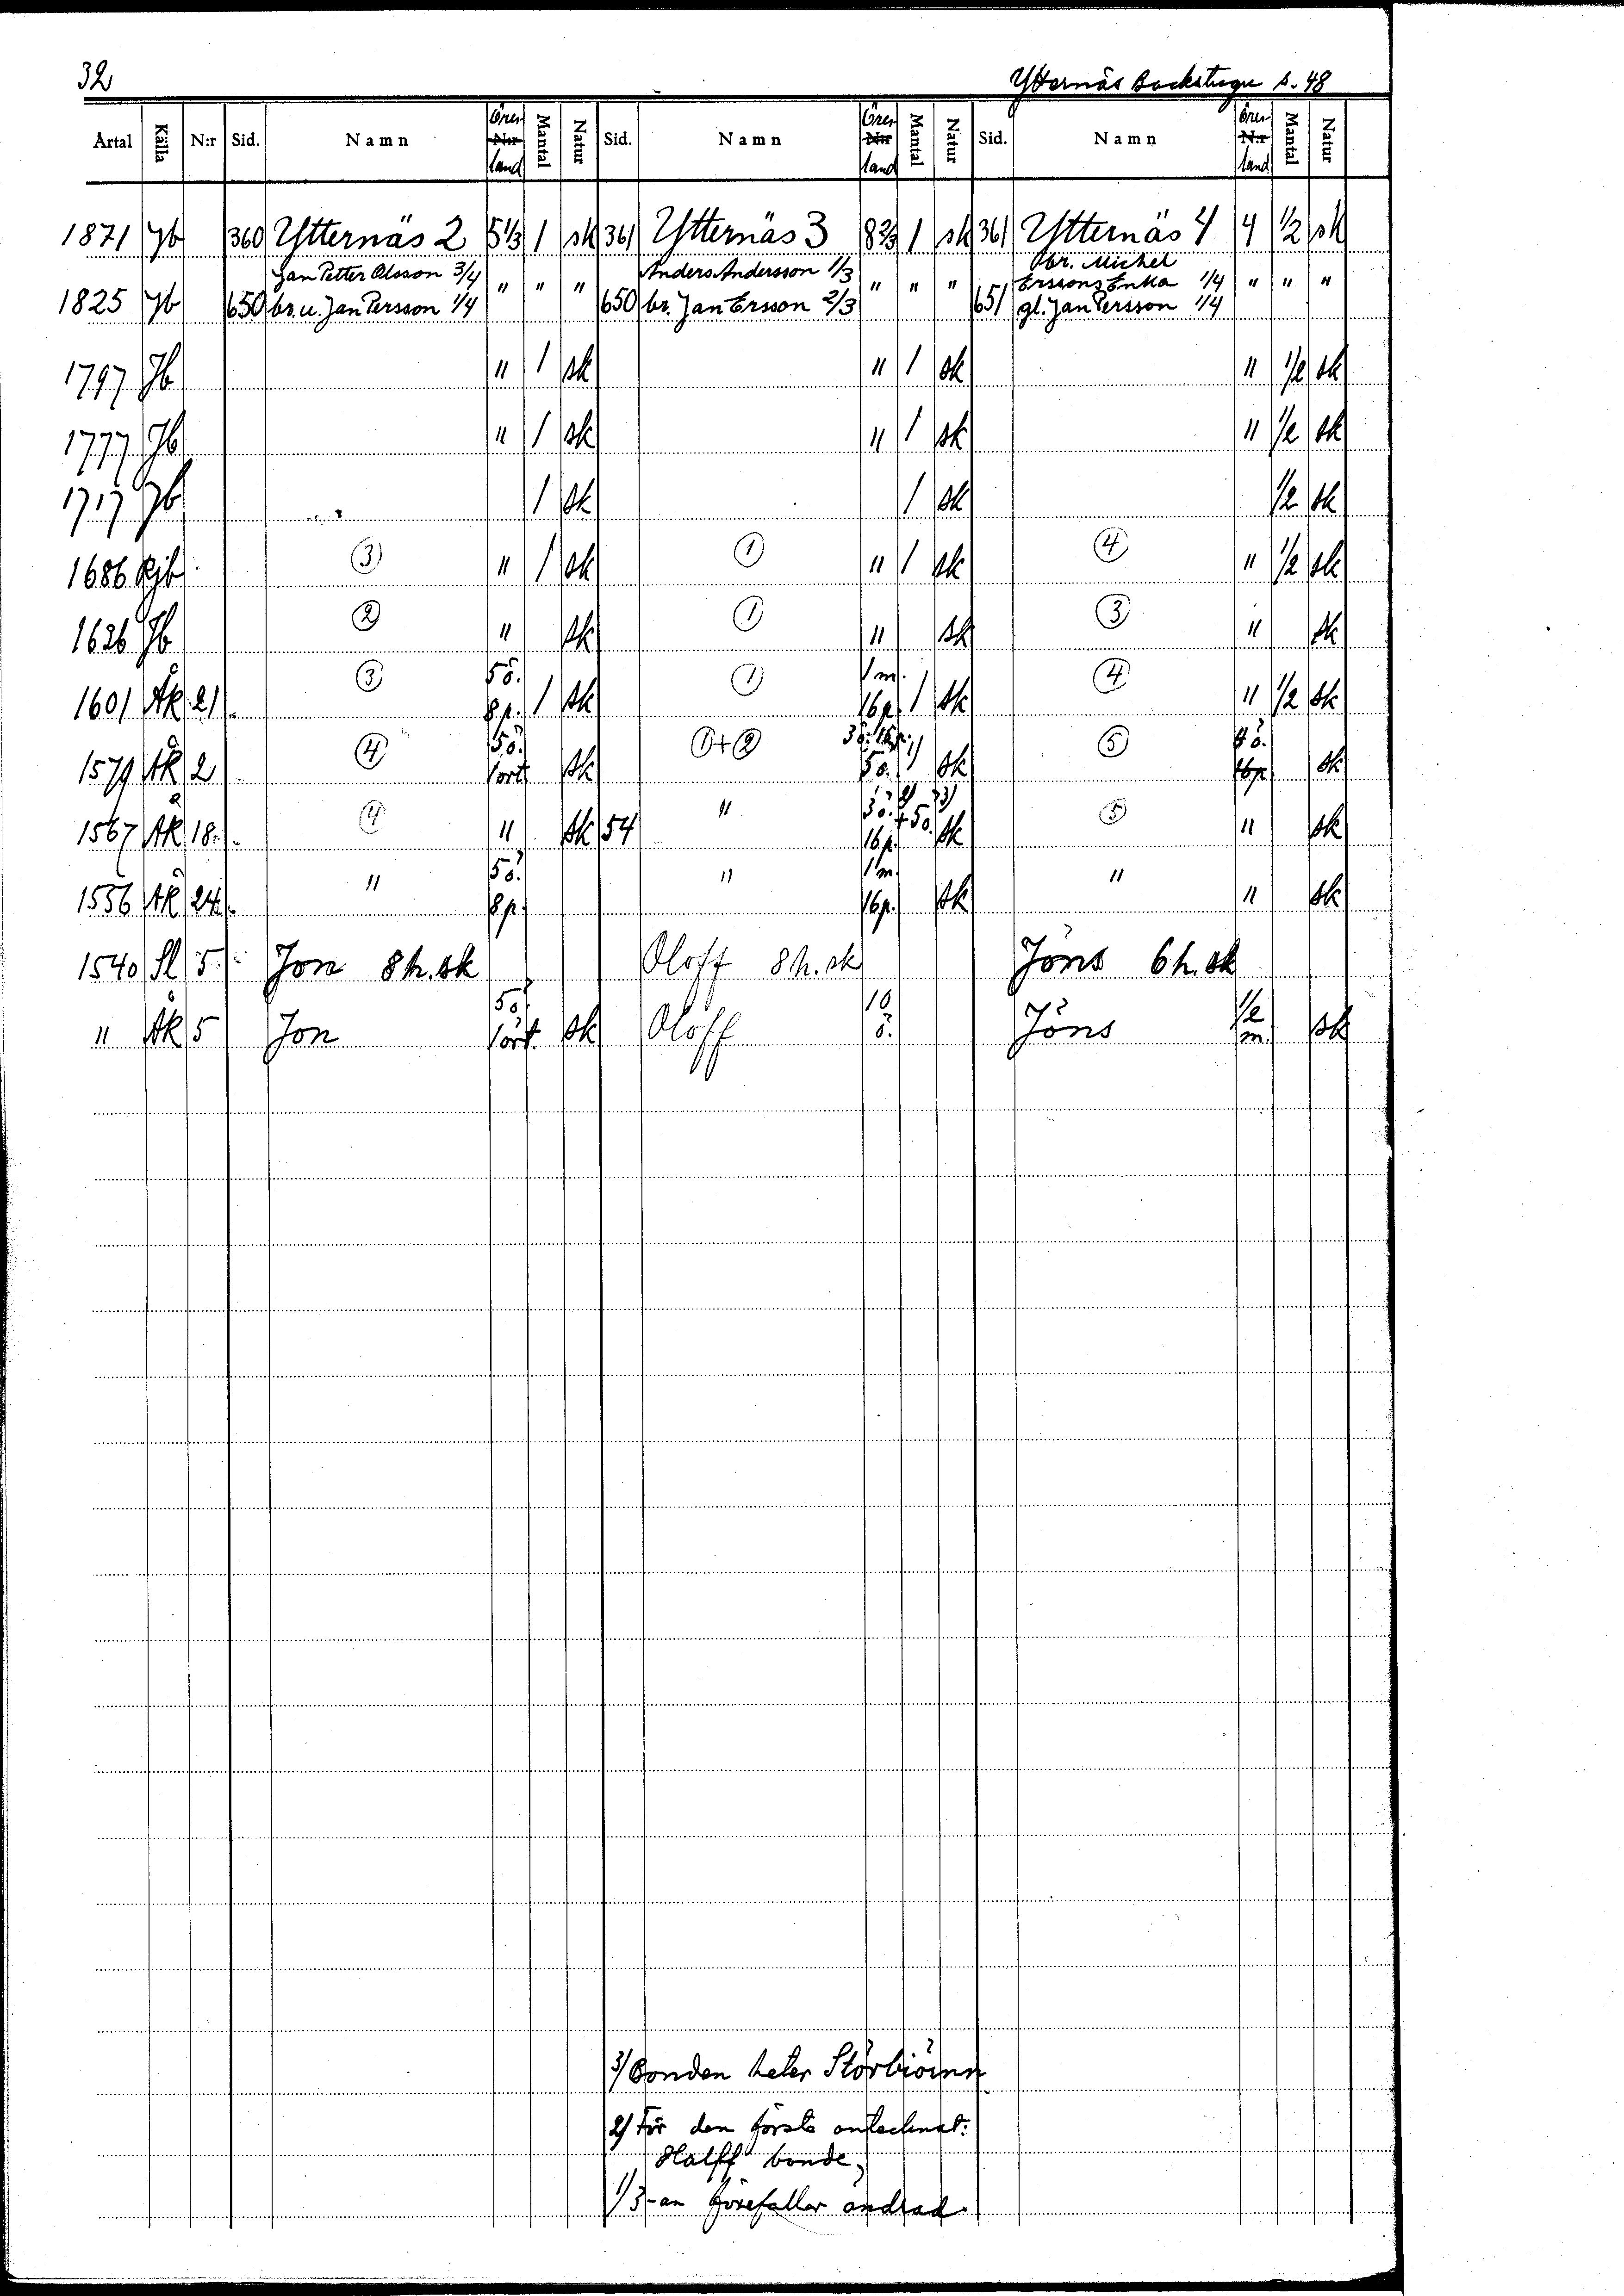 32
Ytternäs Backstugu s. 48
Årtal Källa N:r Sid. Namn Öres N:r land Mantal Natur Sid. Namn Öres N:r land Mantal Natur Sid. Namn Öres N:r land Mantal Natur
1871 Jb 360 Ytternäs 2 5 1/3 1 sk 361 Ytternäs 3 8 2/3 1 sk 361 Ytternäs 4 4 1/2 sk
Jan Petter Olsson 3/4 Anders Andersson 1/3 br. Michel
" " " " " " Erssons Enka 1/4 " " "
1825 Jb 650 br. u. Jan Persson 1/4 650 br. Jan Ersson 2/3 651 gl. Jan Persson 1/4
1797 Jb " 1 sk " 1 sk " 1/2 sk
1777 Jb " 1 sk " 1 sk " 1/2 sk
1717 Jb 1 sk 1 sk 1/2 sk
1686 Rjb 3 " 1 sk 1 " 1 sk 4 " 1/2 sk
1626 Jb 2 " sk 1 " sk 3 " sk
1601 Åk 21 3 5ö. 8p. 1 sk 1 1m. 16p. 1 sk 4 " 1/2 sk
1579 Åk 2 4 5ö. 1ört. sk 1+2 3ö. 16p. 1) 5ö. sk 5 4ö. 16p. sk
1567 Åk 18 4 " sk 54 " 2) 3) 3ö. + 5ö. 16p. sk 5 " sk
1556 Åk 24 " 5ö. 8p. " 1m. 16p. sk " " sk
1540 Sl 5 Jon 8 h. sk Oloff 8 h. sk Jöns 6 h. sk
" Åk 5 Jon 5ö. 1ört. sk Oloff 10 ö. Jöns 1/2 m. sk
3/ Bonden heter Störbiörnn
2/ För den förste antecknat:
Halff bonde.
1/ 3-an förefaller ändrad.